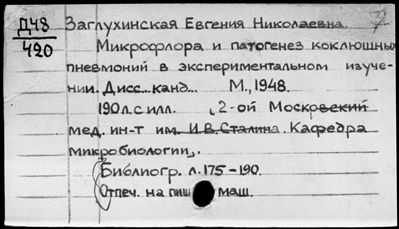 Д48 Заглухинская Евгения Николаевна.
420 Микрофлора и патогенез коклюшных
пневмоний в экспериментальном изуче-
нии. Дисс... канд... М., 1948.
190 л. с илл. 2-ой Московский
мед. ин-т им. И.В. Сталина. Кафедра
микробиологии.
Библиогр. л. 175-190.
Отпеч. на пиш маш.